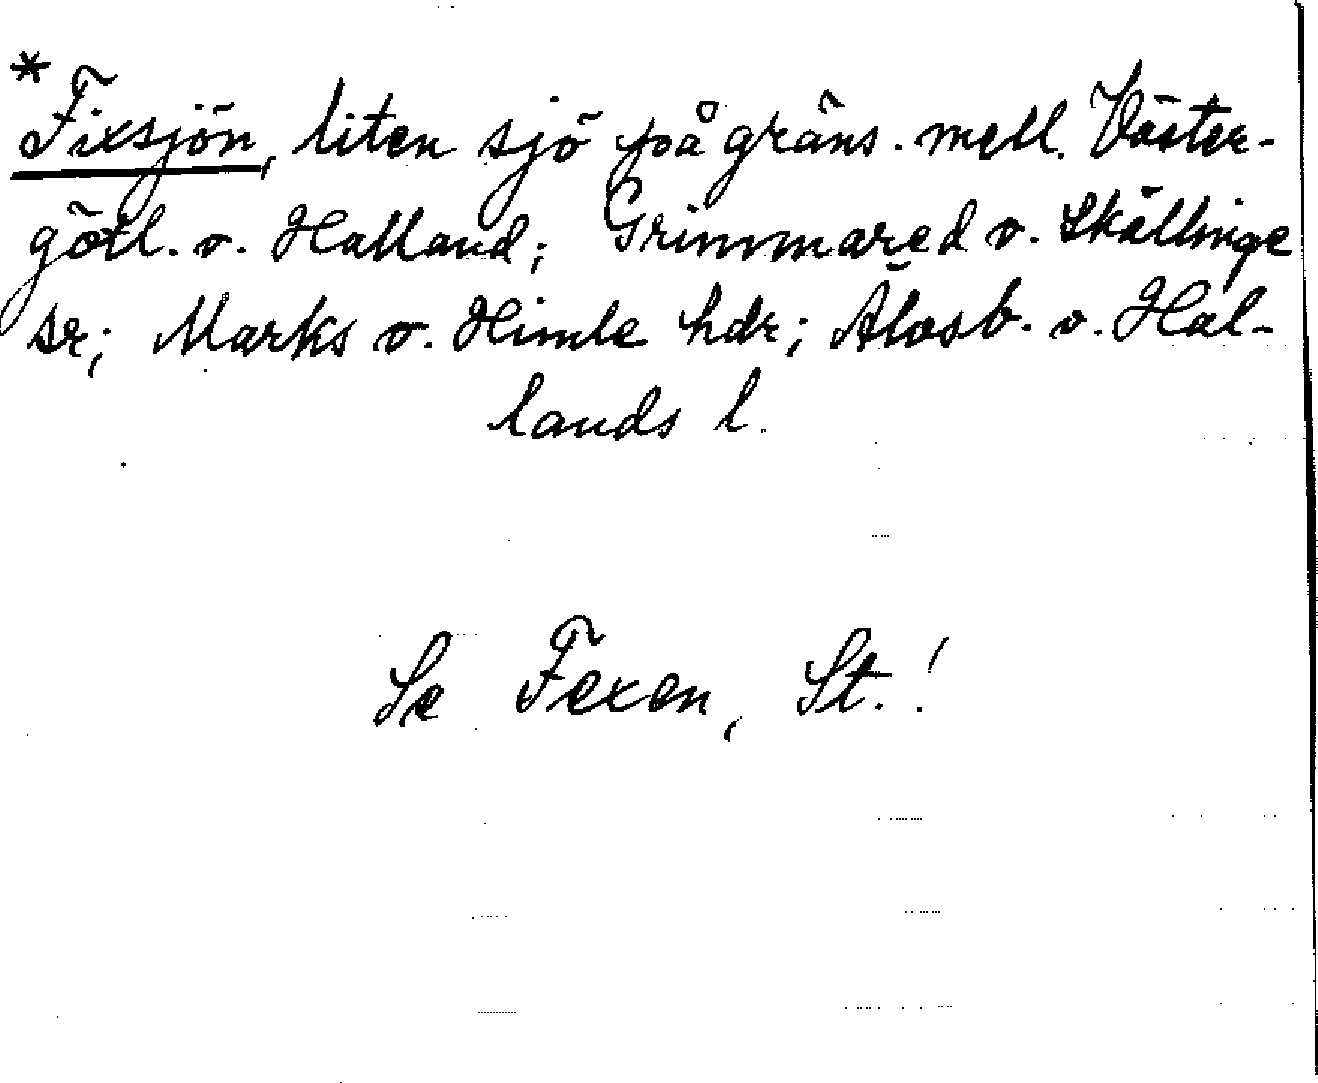 *Fixsjön, liten sjö på gräns. mell. Väster-
götl. o. Halland; Grimmared o. Skällinge
sr; Marks o. Himle hdr; Älvsb. o. Hal-
lands l.
Se Fexen, St.!